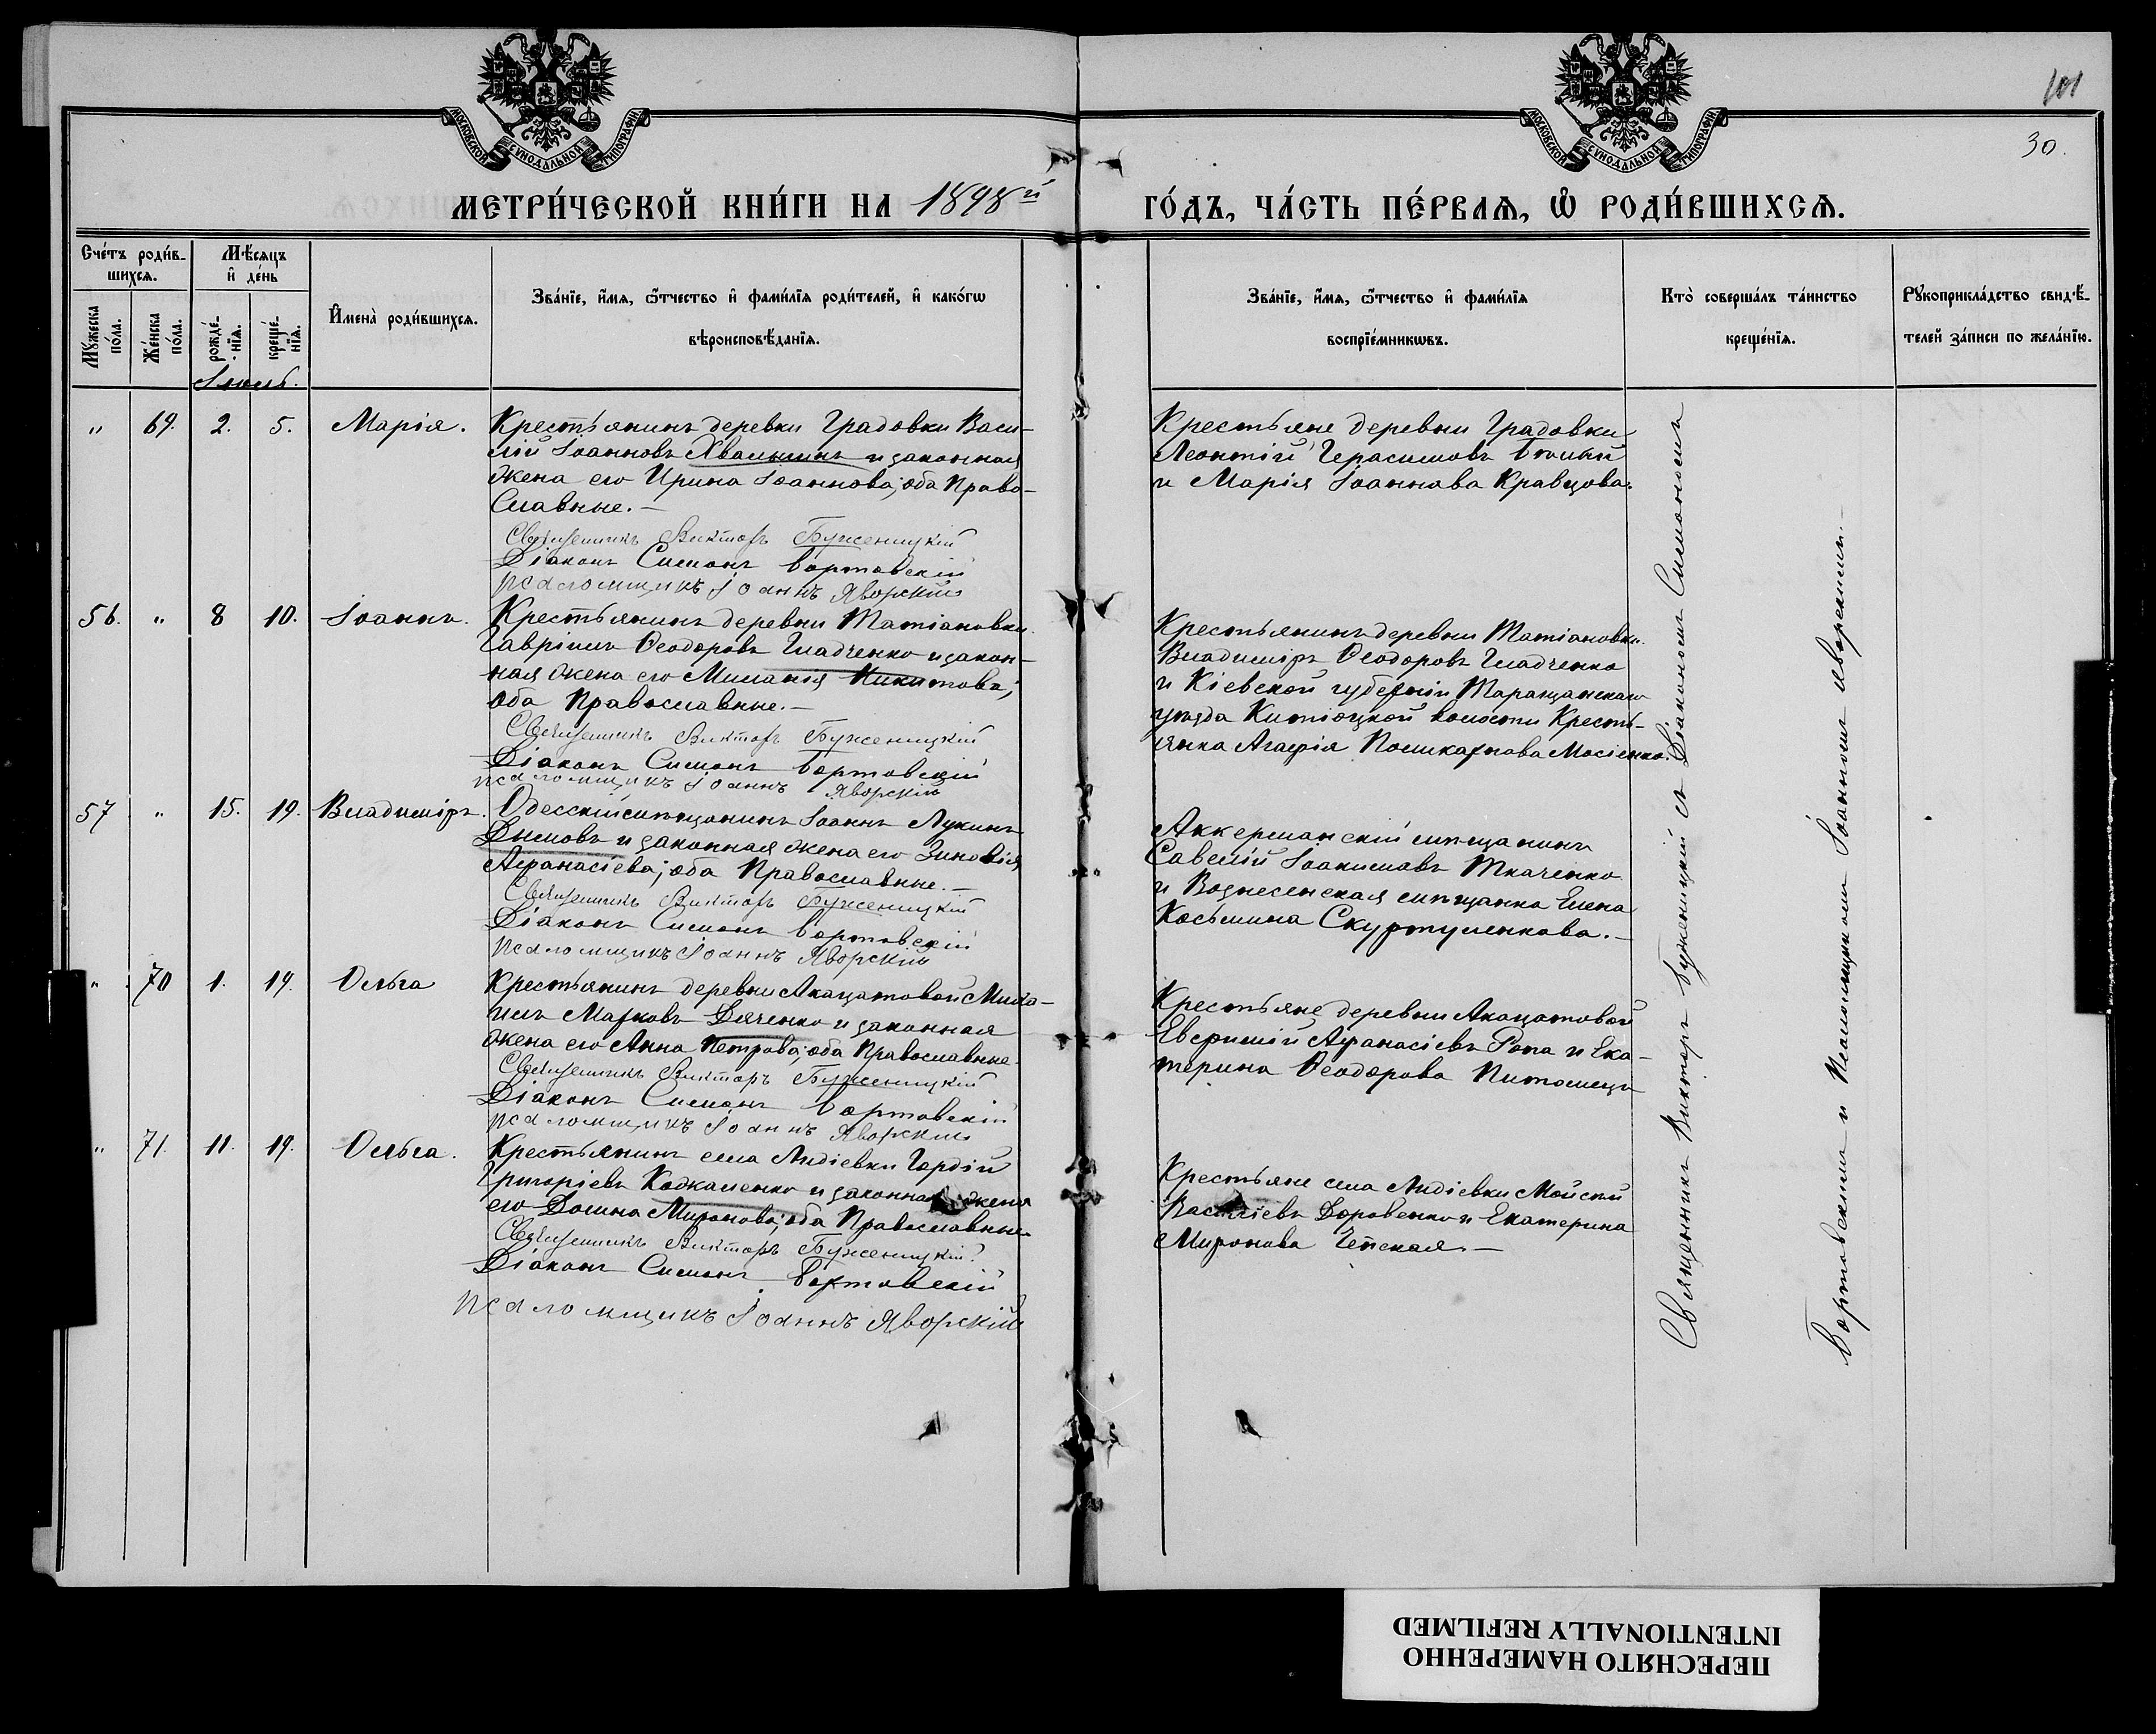 101
30.
МОСКОВСКОЙ СѴНОДАЛЬНОЙ ТИПОГРАФІИ
МОСКОВСКОЙ СѴНОДАЛЬНОЙ ТИПОГРАФІИ
МЕТРИ́ЧЕСКОЙ КНИ́ГИ НА 1898й ГО́ДЪ, ЧА́СТЬ ПЕ́РВАѦ, Ѡ РОДИ́ВШИХСѦ.
Сче́тъ роди́в-
шихсѧ.
Мꙋ́жеска по́ла.
Же́нска по́ла.
Мѣ́сѧцъ
и҆ де́нь
рожде́-
нїѧ.
креще́-
нїѧ.
И҆мена̀ роди́вшихсѧ.
Зва́нїе, и҆́мѧ, ѻ҆́тчество и҆ фами́лїѧ роди́телей, и҆ како́гѡ
вѣроисповѣ́данїѧ.
Зва́нїе, и҆́мѧ, ѻ҆́тчество и҆ фами́лїѧ
воспрїе́мникѡвъ.
Кто̀ соверша́лъ та́инство
креще́нїѧ.
Рꙋкоприкла́дство свидѣ́-
телей за́писи по жела́нїю.
Іюль.
„ 69. 2. 5. Марія.
Крестьянинъ деревни Градовки Васи-
лій Іоанновъ и законная
жена его Ирина Іоаннова; оба Право-
славные.—
Священникъ Викторъ Буженицкій
Діаконъ Симонъ Бортовскій
псаломщикъ Іоаннъ Яворскій
Крестьяне деревни Градовки
Леонтій Герасимовъ
и Марія Іоаннова Кравцова.
56. „ 8 10. Іоаннъ.
Крестьянинъ деревни Татіановки
Гавріилъ Ѳеодоровъ Гладченко и закон-
ная жена его Миланія Никитова;
оба Православные.—
Священникъ Викторъ Буженицкій
Діаконъ Симонъ Бортовскій
псаломщикъ Іоаннъ Яворскій
Крестьянинъ деревни Татіановки
Владиміръ Ѳеодоровъ Гладченко
и Кіевской губерніи Таращанскаго
уѣзда волости Кресть-
янка Агафія Поликарпова Мосіенко.
57 „ 15. 19. Владиміръ.
Одесскій мѣщанинъ Іоаннъ Лукинъ
Дымовъ и законная жена его Зиновія
Афанасіева; оба Православные.—
Священникъ Викторъ Буженицкій
Діаконъ Симонъ Бортовскій
псаломщикъ Іоаннъ Яворскій
Аккерманскій мѣщанинъ
Савелій Іоакимовъ Ткаченко
и Вознесенская мѣщанка Елена
Косьмина Скуртуленкова.—
„ 70 1. 19. Ольга
Крестьянинъ деревни Акацатовой Миха-
илъ Марковъ Дяченко и законная
жена его Анна Петрова; оба Православные.
Священникъ Викторъ Буженицкій
Діаконъ Симонъ Бортовскій
псаломщикъ Іоаннъ Яворскій
Крестьяне деревни Акацатовой
Евфимій Афанасіевъ Ропа и Ека-
терина Ѳеодорова Питомецъ
„ 71. 11. 19. Ольга.
Крестьянинъ села Лидіевки Гордій
Григоріевъ Коджаленко и законная жена
его Домна Миронова; оба Православные.
Священникъ Викторъ Буженицкій
Діаконъ Симонъ Бортовскій
псаломщикъ Іоаннъ Яворскій
Крестьяне села Лидіевки Мойсей
Василіевъ Доровенко и Екатерина
Миронова
Священникъ Викторъ Буженицкій съ Діакономъ Симономъ
Бортовскимъ и Псаломщикомъ Іоанномъ Яворскимъ.—
ПЕРЕСНЯТО НАМЕРЕННО
INTENTIONALLY REFILMED